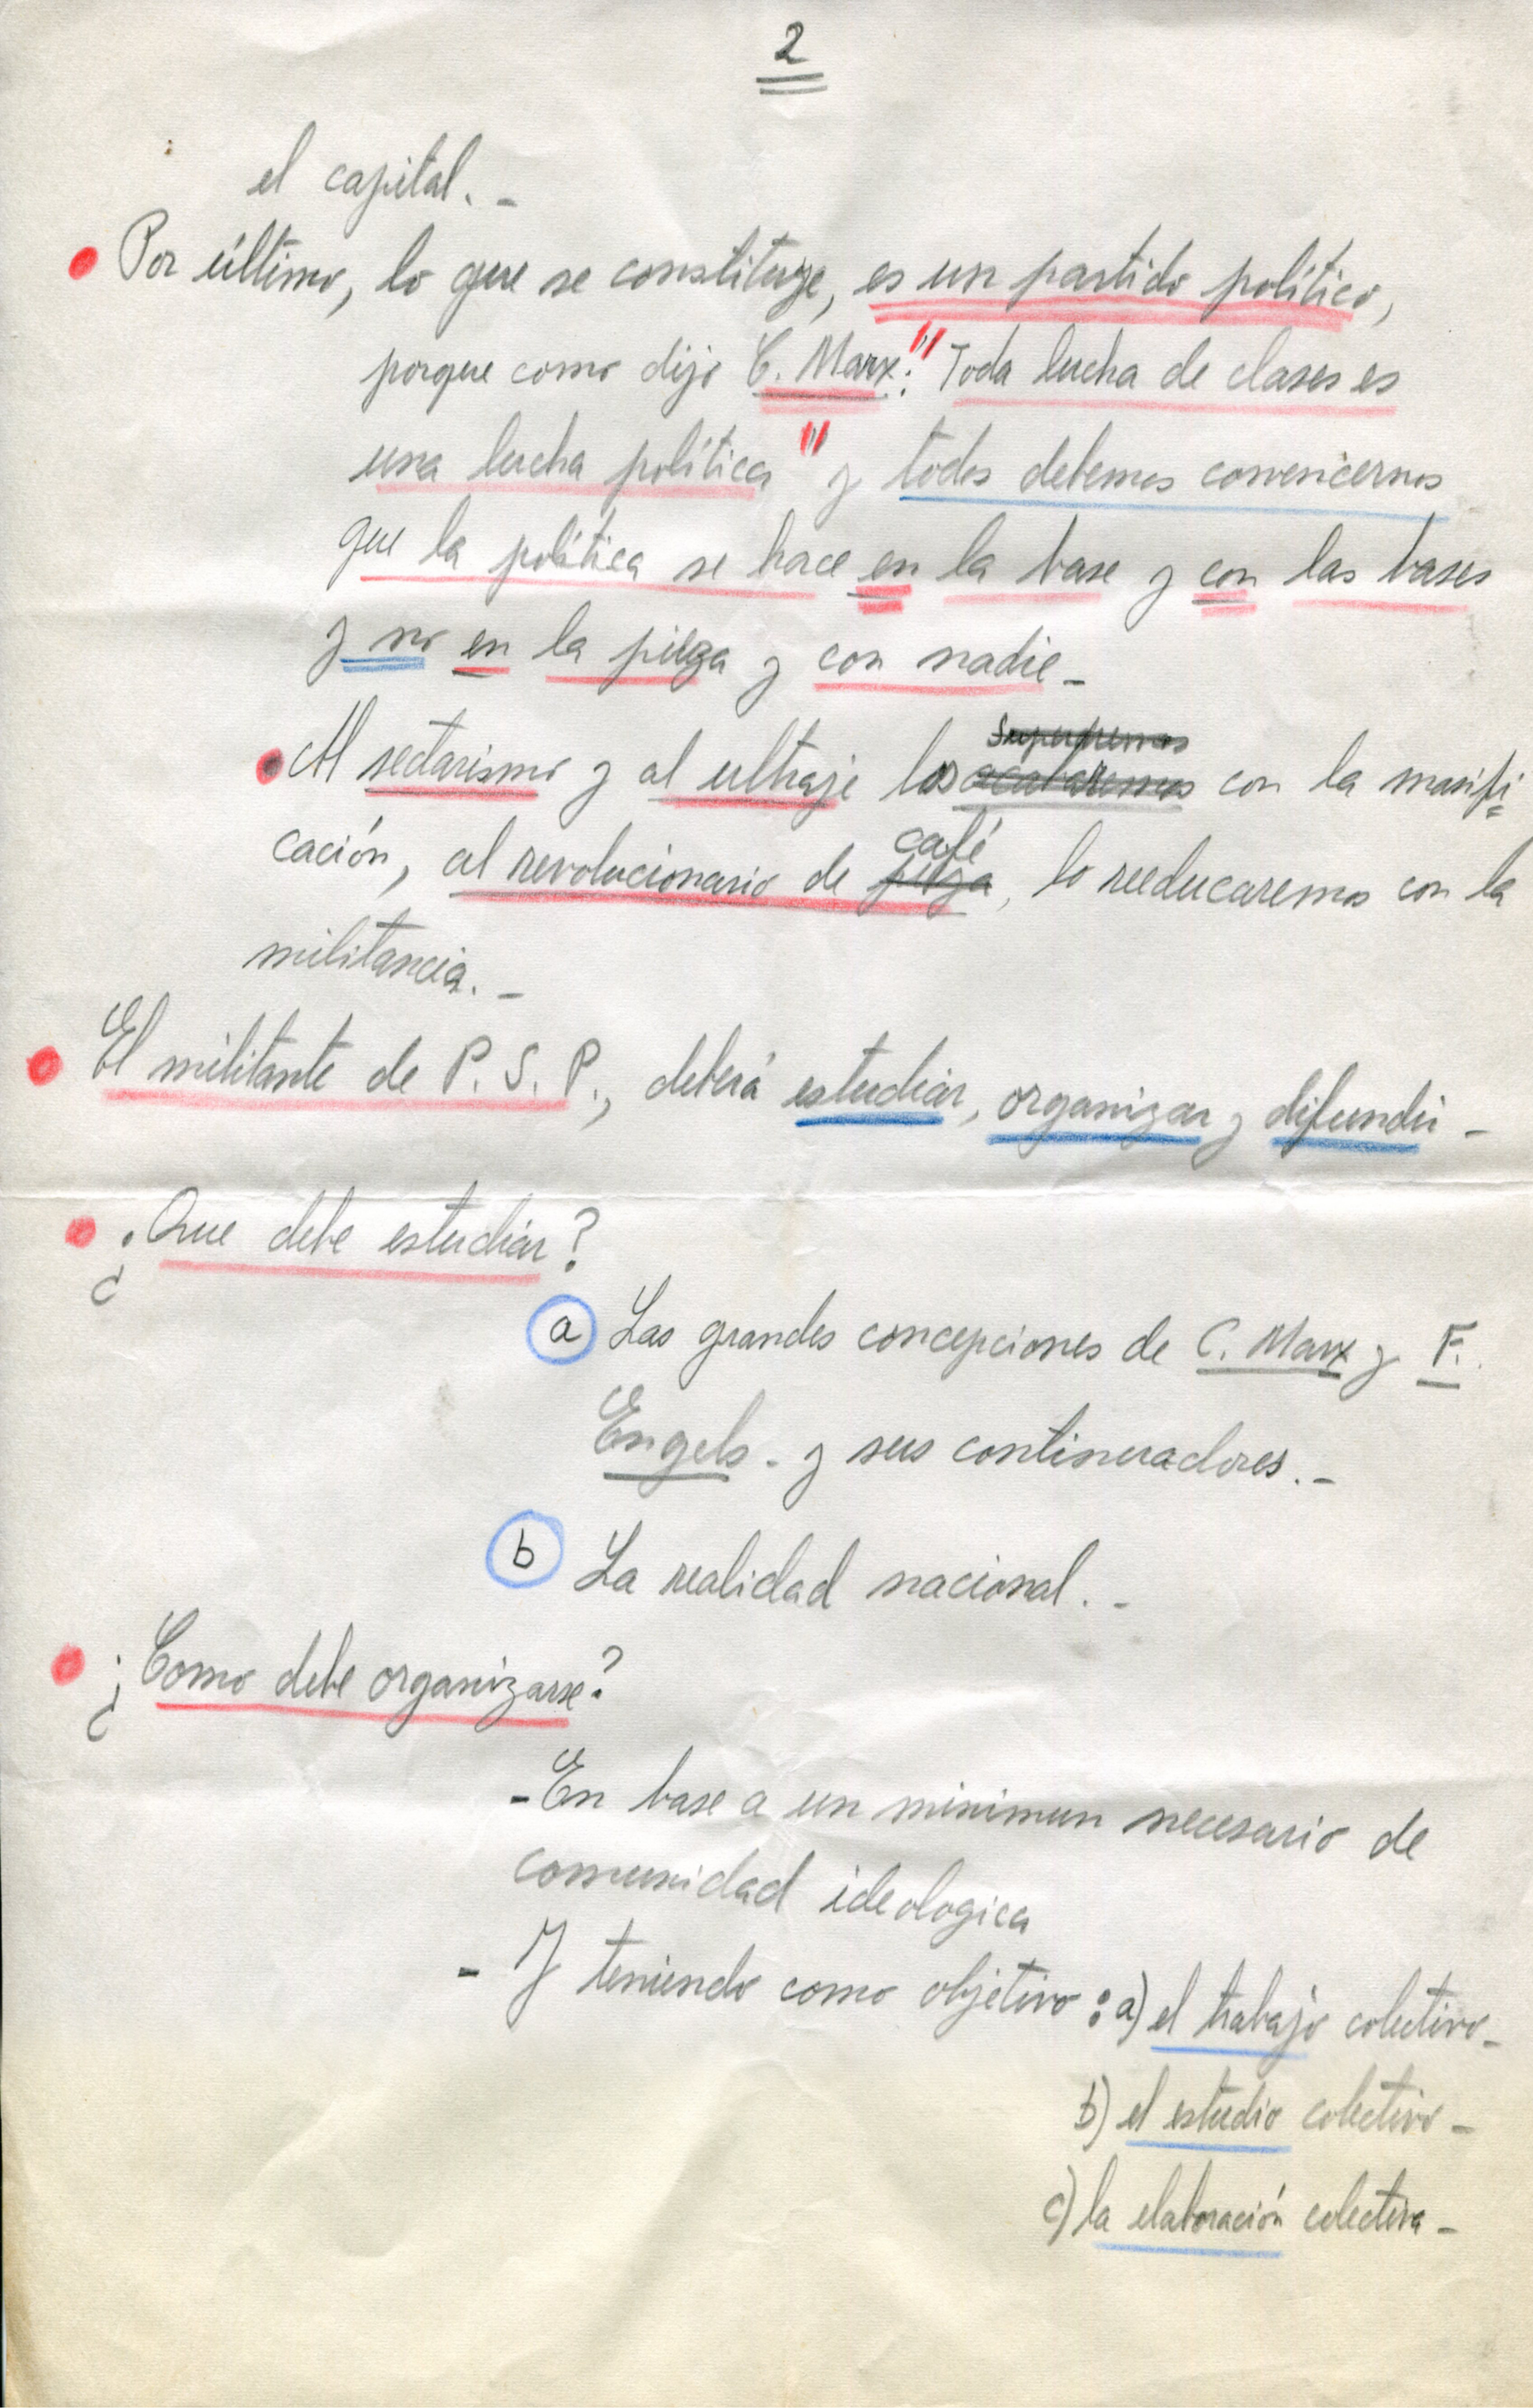 2
el capital. -
Por último, lo que se constituye, es un partido político,
porque como dijo C. Marx: "Toda lucha de clases es
una lucha política" y todos debemos convencernos
que la política se hace en la base y con las bases
y no en la pieza y con nadie -
Al sectarismo y al ultraje los acabaremos con la masifi
cación, al revolucionario de pieza café, lo reeducaremos con la
militancia. -
El militante de P. S. P., deberá estudiar, organizar y difundir -
¿Que debe estudiar?
a Las grandes concepciones de C. Marx y F.
Engels - y sus continuadores. -
b La realidad nacional. -
¿Como debe organizarse?
- En base a un minimun necesario de
comunidad ideologica
- Y teniendo como objetivo: a) el trabajo colectivo -
b) el estudio colectivo -
c) la elaboración colectiva -